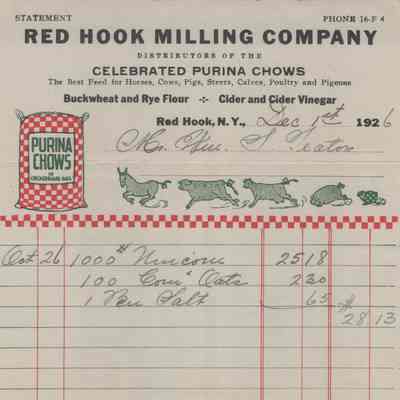 STATEMENT PHONE 16-F 4
RED HOOK MILLING COMPANY
DISTRIBUTORS OF THE
CELEBRATED PURINA CHOWS
The Best Feed for Horses, Cows, Pigs, Steers, Calves, Poultry and Pigeons
Buckwheat and Rye Flour -:- Cider and Cider Vinegar
Red Hook, N.Y., Dec 1st 1926
Mr. Wm. S. Teator
PURINA
CHOWS
IN
CHECKERBOARD BAGS
Oct 26 1000# 2518
100 Corn & Oats 230
1 Salt 65 $
28 13